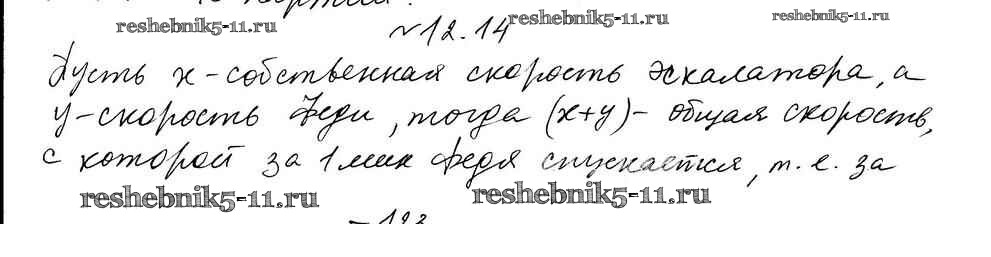 reshebnik5-11.ru reshebnik5-11.ru reshebnik5-11.ru
№12.14
Пусть x - собственная скорость эскалатора, а
y - скорость Феди, тогда (x+y) - общая скорость,
с которой за 1 мин Федя спускается, т.е. за
reshebnik5-11.ru reshebnik5-11.ru